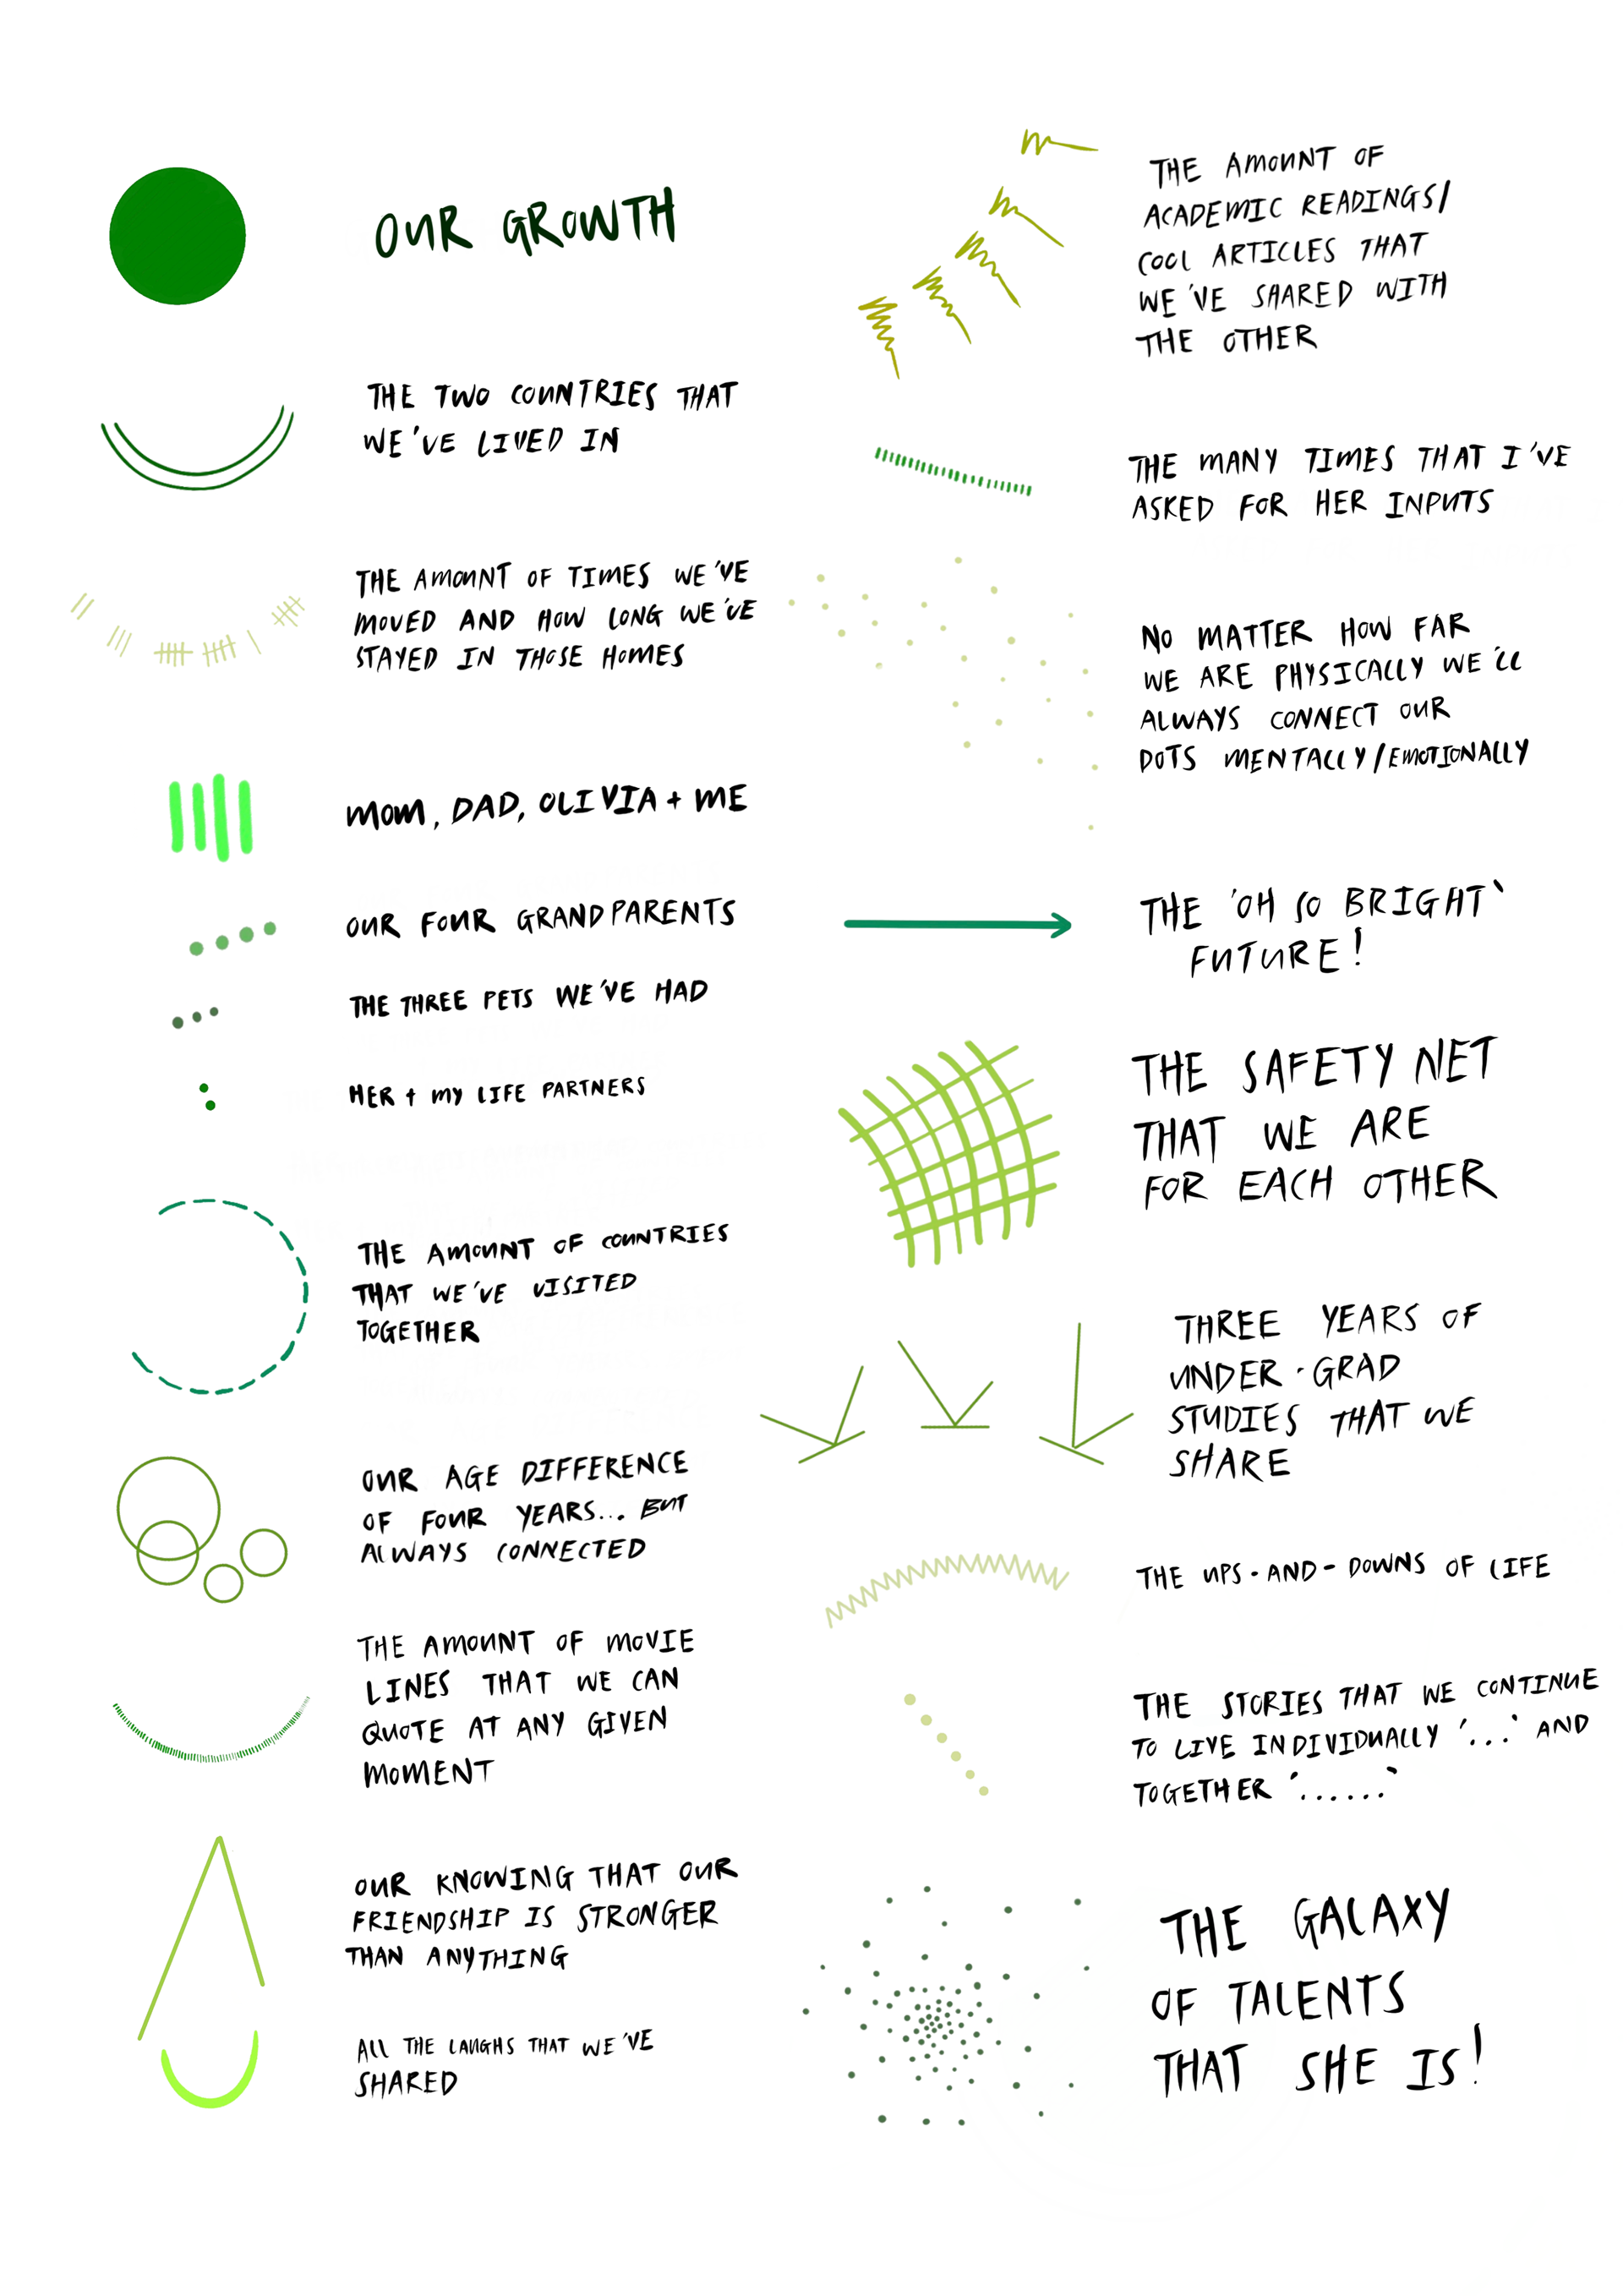 OUR GROWTH
THE TWO COUNTRIES THAT
WE'VE LIVED IN
THE AMOUNT OF TIMES WE'VE
MOVED AND HOW LONG WE'VE
STAYED IN THOSE HOMES
MOM, DAD, OLIVIA + ME
OUR FOUR GRANDPARENTS
THE THREE PETS WE'VE HAD
HER + MY LIFE PARTNERS
THE AMOUNT OF COUNTRIES
THAT WE'VE VISITED
TOGETHER
OUR AGE DIFFERENCE
OF FOUR YEARS... BUT
ALWAYS CONNECTED
THE AMOUNT OF MOVIE
LINES THAT WE CAN
QUOTE AT ANY GIVEN
MOMENT
OUR KNOWING THAT OUR
FRIENDSHIP IS STRONGER
THAN ANYTHING
ALL THE LAUGHS THAT WE'VE
SHARED
THE AMOUNT OF
ACADEMIC READINGS/
COOL ARTICLES THAT
WE'VE SHARED WITH
THE OTHER
THE MANY TIMES THAT I'VE
ASKED FOR HER INPUTS
NO MATTER HOW FAR
WE ARE PHYSICALLY WE'LL
ALWAYS CONNECT OUR
DOTS MENTALLY/EMOTIONALLY
THE 'OH SO BRIGHT'
FUTURE!
THE SAFETY NET
THAT WE ARE
FOR EACH OTHER
THREE YEARS OF
UNDER-GRAD
STUDIES THAT WE
SHARE
THE UPS-AND-DOWNS OF LIFE
THE STORIES THAT WE CONTINUE
TO LIVE INDIVIDUALLY '...' AND
TOGETHER '......'
THE GALAXY
OF TALENTS
THAT SHE IS!